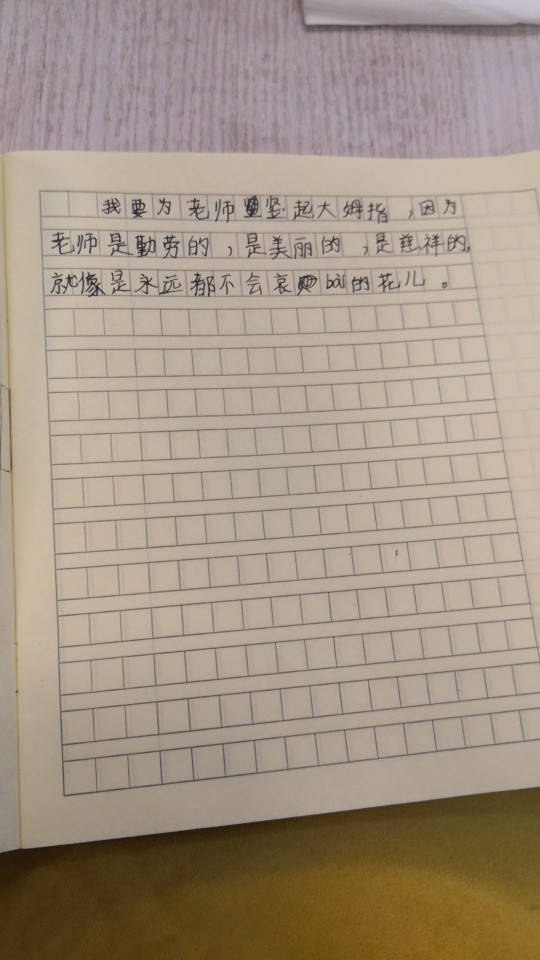 我要为老师竖起大姆指,因为
老师是勤劳的,是美丽的,是慈祥的,
就像是永远都不会哀bai的花儿。